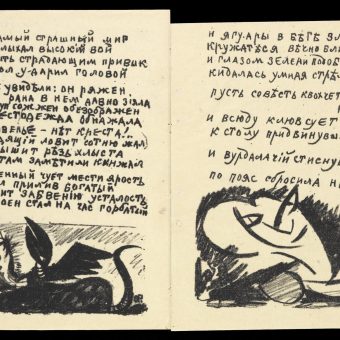 амый страшный мир
лыхал высокий вой
ть страдающим привик
ол ударил головой
увидели: он ряжен
рана в нем давно зяла
сожжен обезображен
одежда обнажала
нет креста!..
дящий ловит сотню жал
ышит резь хлыста
там заметили кинжал
енный чует мести ярость
прилив богатый
ит забвению усталость
оен стал на час горбатый
и ягуары в беге зл
кружаться вечно бл
и глазом зелени подоб
кидалась умная стре
пусть совесть квохчет
и всюду клюв сует
к столу придвинувш
и вурдалачий стисну
по пояс сбросила н